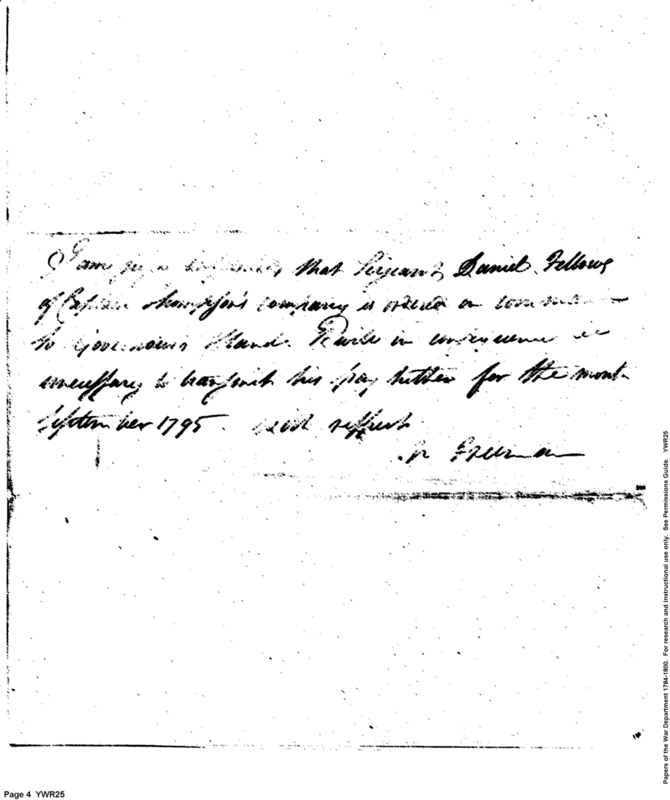 I am that Sergeant Daniel Fellows
of Captain Thompson's company is ordered on
to Governours Island. in
unnecessary to transmit his pay hither for the
September 1795. with respect
Freeman
Page 4 YWR25
Papers of the War Department 1784-1800. For research and instructional use only. See Permissions Guide. YWR25